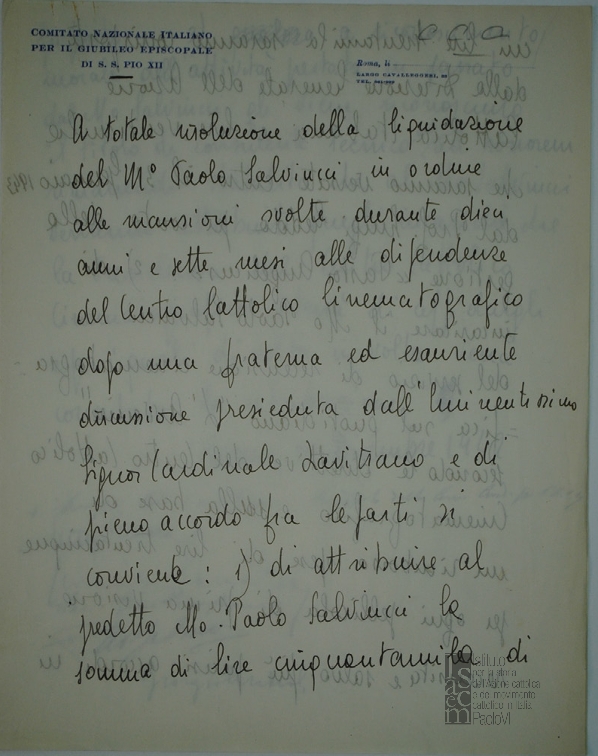 COMITATO NAZIONALE ITALIANO
PER IL GIUBILEO EPISCOPALE
DI S. S. PIO XII
Roma, li
LARGO CAVALLEGGERI,
TEL.
A totale risoluzione della liquidazione
del M° Paolo Salvucci in ordine
alle mansioni svolte durante dieci
anni e sette mesi alle dipendenze
del Centro Cattolico Cinematografico
dopo una fraterna ed esauriente
discussione presieduta dall'Eminentissimo
Signor Cardinale Lavitrano e di
pieno accordo fra le parti si
conviene: 1) di attribuire al
predetto Mo. Paolo Salvucci la
somma di lire cinquantamila di
Istituto
per la storia
dell'Azione cattolica
e del movimento
cattolico in Italia
Paolo VI
isacem